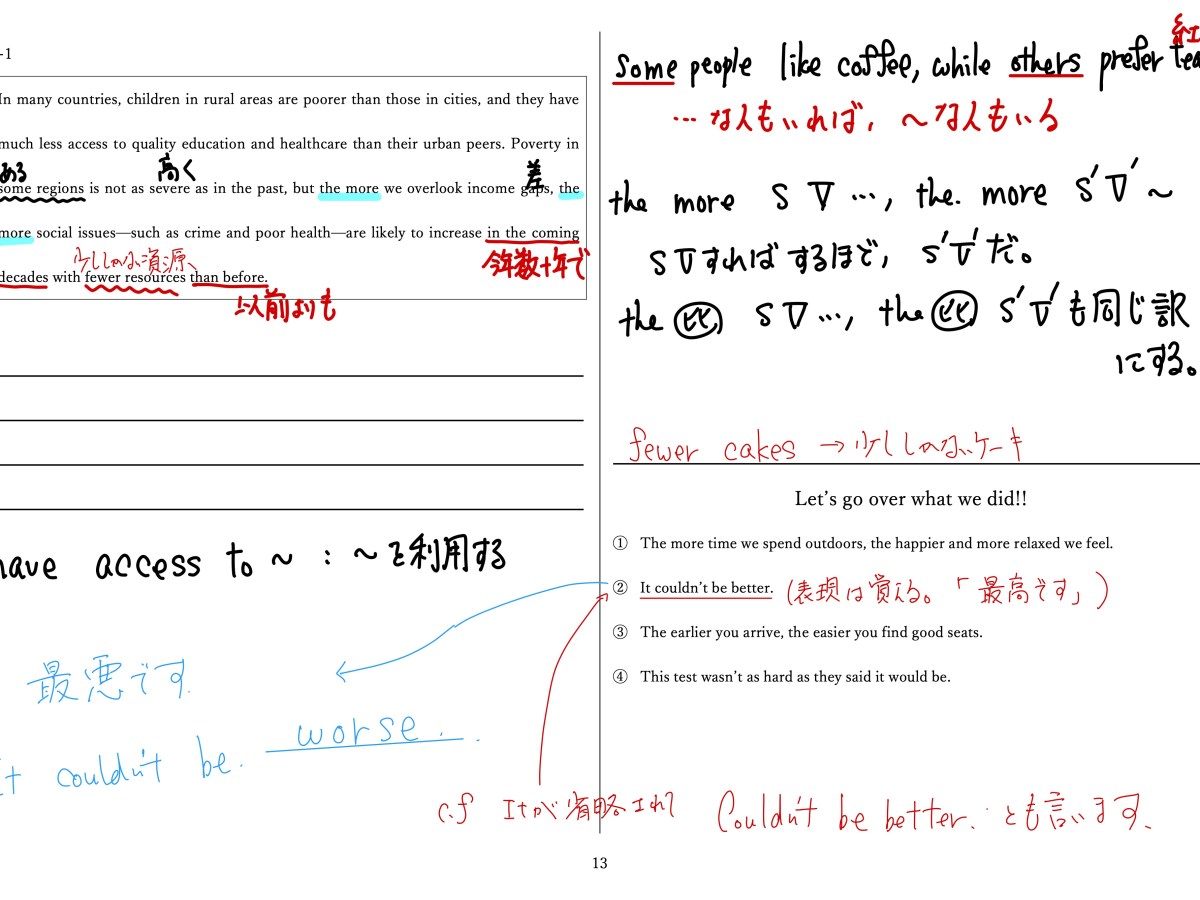 -1
In many countries, children in rural areas are poorer than those in cities, and they have
much less access to quality education and healthcare than their urban peers. Poverty in
ある 高く 差
some regions is not as severe as in the past, but the more we overlook income gaps, the
more social issues—such as crime and poor health—are likely to increase in the coming
少ししかない資源、 今年数十年で
decades with fewer resources than before.
以前よりも
have access to ~ : ~を利用する
最悪です
It couldn't be. worse.
Some people like coffee, while others prefer tea
紅
…な人もいれば, ~な人もいる
the more S V …, the. more S' V' ~
S Vすればするほど, S' V'だ。
the 比 S V …, the 比 S' V' も同じ訳
にする。
fewer cakes → 少ししかないケーキ
Let's go over what we did!!
① The more time we spend outdoors, the happier and more relaxed we feel.
② It couldn't be better. (表現は覚える。「最高です」)
③ The earlier you arrive, the easier you find good seats.
④ This test wasn't as hard as they said it would be.
c.f Itが省略されて Couldn't be better. とも言います、
13